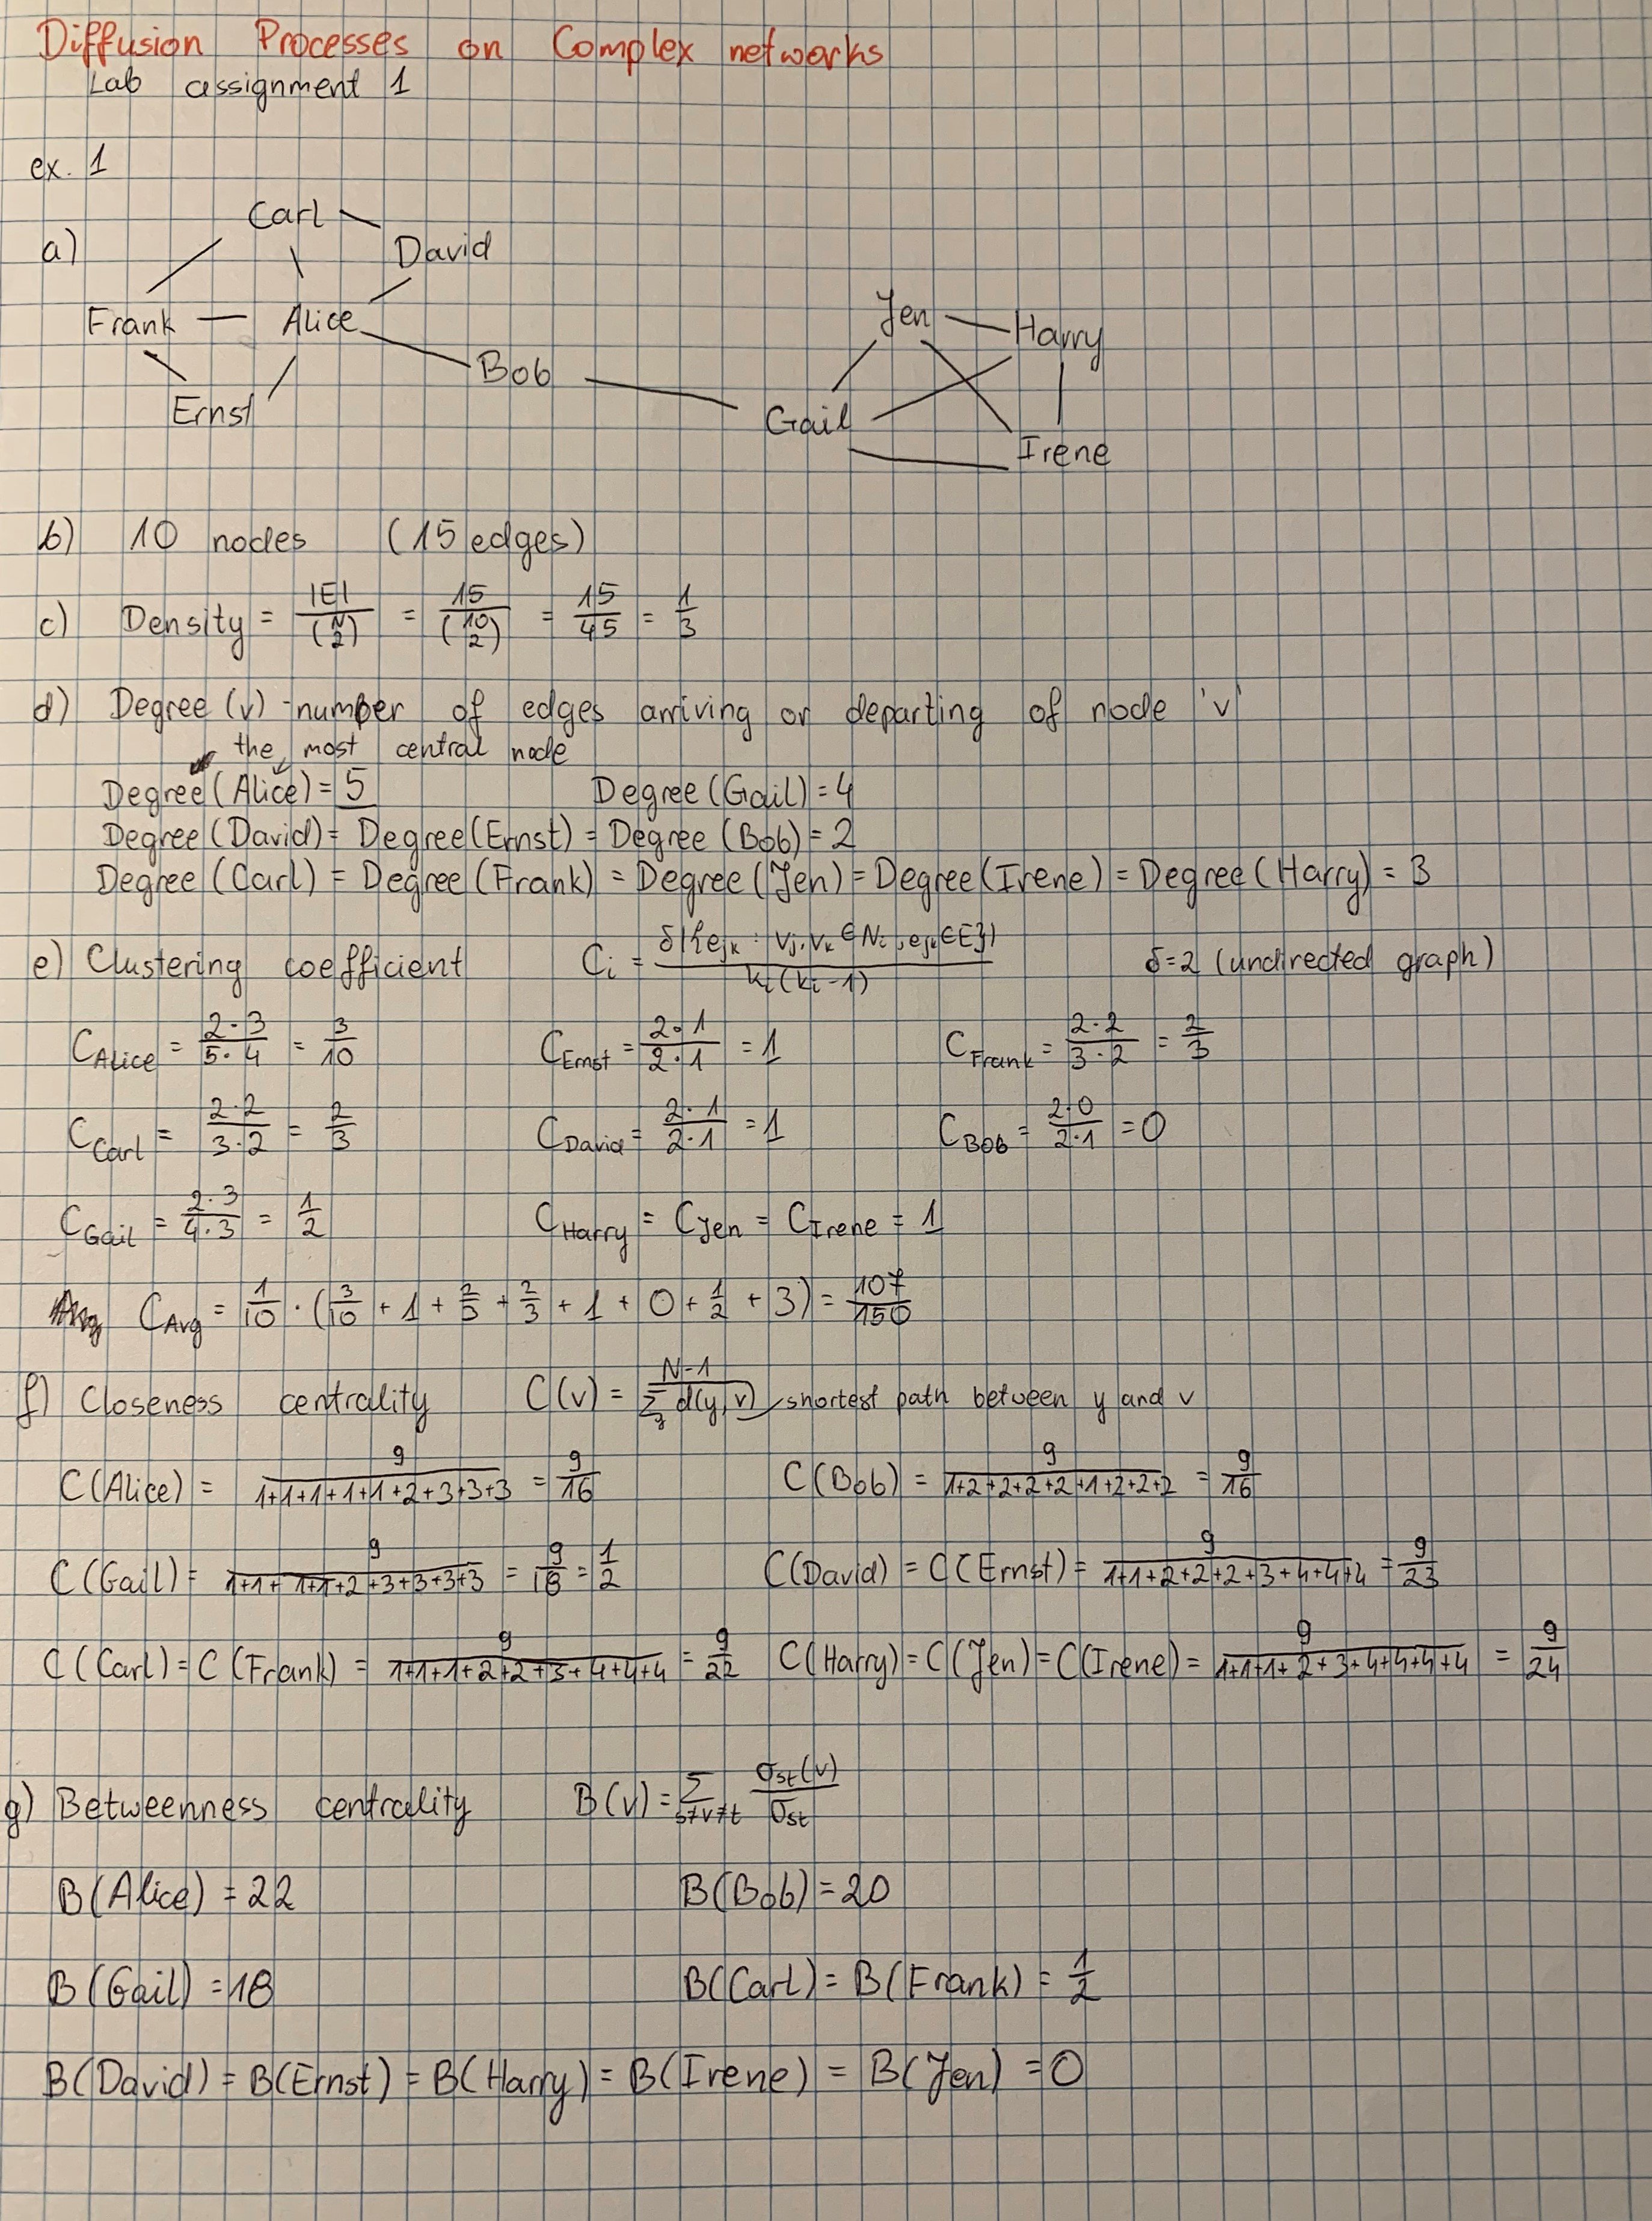 Diffusion Processes on Complex networks
Lab assignment 1
ex. 1
a)
Carl
David
Frank Alice
Bob
Ernst
Jen
Harry
Gail
Irene
b) 10 nodes (15 edges)
c) Density = |E| / (N 2) = 15 / (10 2) = 15/45 = 1/3
d) Degree (v) - number of edges arriving or departing of node 'v'
the most central node
Degree (Alice) = 5 Degree (Gail) = 4
Degree (David) = Degree (Ernst) = Degree (Bob) = 2
Degree (Carl) = Degree (Frank) = Degree (Jen) = Degree (Irene) = Degree (Harry) = 3
e) Clustering coefficient C_i = δ|{e_jk : v_j, v_k ∈ N_i, e_jk ∈ E}| / k_i(k_i-1) δ=2 (undirected graph)
C_Alice = 2·3/5·4 = 3/10 C_Ernst = 2·1/2·1 = 1 C_Frank = 2·2/3·2 = 2/3
C_Carl = 2·2/3·2 = 2/3 C_David = 2·1/2·1 = 1 C_Bob = 2·0/2·1 = 0
C_Gail = 2·3/4·3 = 1/2 C_Harry = C_Jen = C_Irene = 1
C_Avg = 1/10 · (3/10 + 1 + 2/3 + 2/3 + 1 + 0 + 1/2 + 3) = 107/150
f) Closeness centrality C(v) = N-1 / Σ_y d(y,v) shortest path between y and v
C(Alice) = 9 / 1+1+1+1+1+2+3+3+3 = 9/16 C(Bob) = 9 / 1+2+2+2+2+1+2+2+2 = 9/16
C(Gail) = 9 / 1+1+1+1+2+3+3+3+3 = 9/18 = 1/2 C(David) = C(Ernst) = 9 / 1+1+2+2+2+3+4+4+4 = 9/23
C(Carl) = C(Frank) = 9 / 1+1+1+2+2+3+4+4+4 = 9/22 C(Harry) = C(Jen) = C(Irene) = 9 / 1+1+1+2+3+4+4+4+4 = 9/24
g) Betweenness centrality B(v) = Σ_s≠v≠t σ_st(v) / σ_st
B(Alice) = 22 B(Bob) = 20
B(Gail) = 18 B(Carl) = B(Frank) = 1/2
B(David) = B(Ernst) = B(Harry) = B(Irene) = B(Jen) = 0